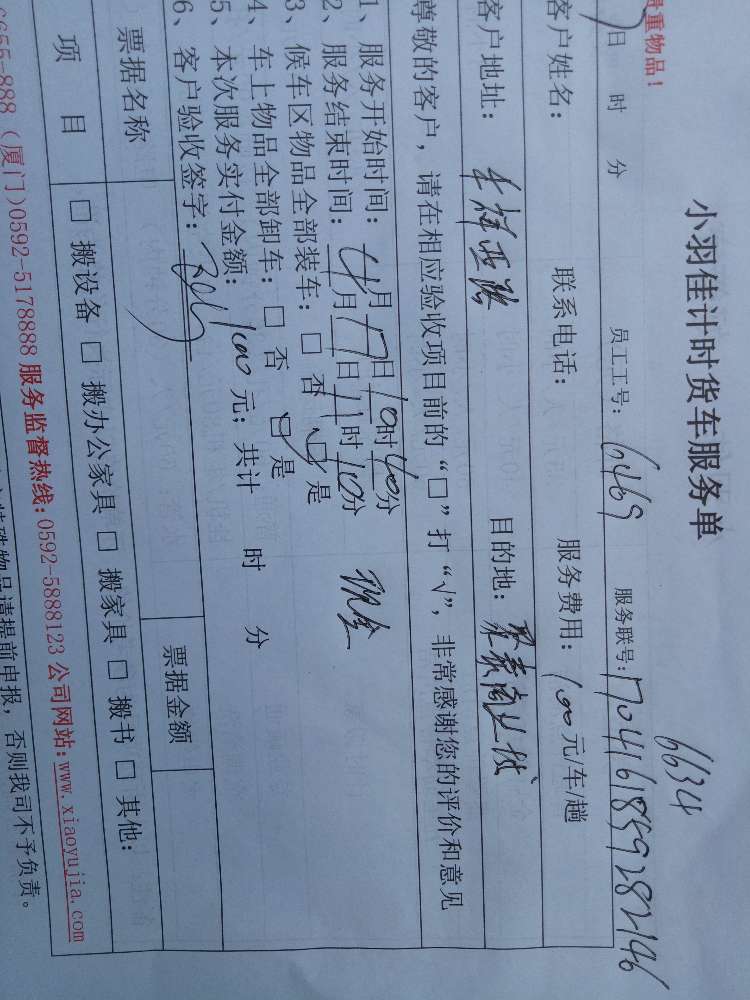 贵重物品！
小羽佳计时货车服务单
6634
日 时 分 员工工号：6469 服务联号：1704161859282146
客户姓名： 联系电话： 服务费用：100元/车/趟
客户地址： 目的地：
尊敬的客户，请在相应验收项目前的“□”打“√”，非常感谢您的评价和意见
1、服务开始时间：4月17日10时40分
2、服务结束时间： 月 日11时10分 现金
3、候车区物品全部装车：□否 ☑是
4、车上物品全部卸车：□否 ☑是
5、本次服务实付金额：100元；共计 时 分
6、客户验收签字：
票据名称 票据金额
项目 □搬设备 □搬办公家具 □搬家具 □搬书 □其他：
6655-888（厦门）0592-5178888 服务监督热线：0592-5888123 公司网站：www.xiaoyujia.com
特殊物品请提前申报，否则我司不予负责。